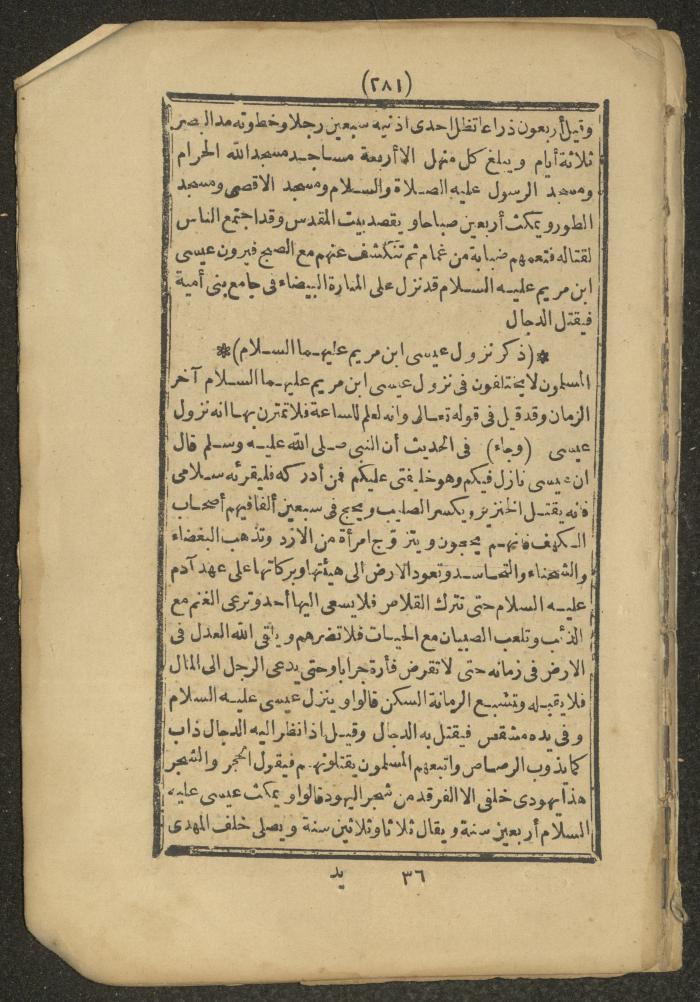 (٢٨١)
وقيل أربعون ذراعا تظل احدى اذنيه سبعين رجلا وخطوته مد البصر
ثلاثة أيام ويبلغ كل منهل الا أربعة مساجد مسجد الله الحرام
ومسجد الرسول عليه الصلاة والسلام ومسجد الاقصى ومسجد
الطور ويمكث أربعين صباحا ويقصد بيت المقدس وقد اجتمع الناس
لقتاله فتعمهم ضبابة من غمام ثم تنكشف عنهم مع الصبح فيرون عيسى
ابن مريم عليه السلام قد نزل على المنارة البيضاء فى جامع بنى أمية
فيقتل الدجال
*(ذكر نزول عيسى ابن مريم عليهما السلام)*
المسلمون لا يختلفون فى نزول عيسى ابن مريم عليهما السلام آخر
الزمان وقد قيل فى قوله تعالى وانه لعلم للساعة فلا تمترن بها انه نزول
عيسى (وجاء) فى الحديث أن النبى صلى الله عليه وسلم قال
ان عيسى نازل فيكم وهو خليفتى عليكم فمن أدركه فليقرئه سلامى
فانه يقتل الخنزير ويكسر الصليب ويحج فى سبعين ألفا فيهم أصحاب
الكهف فانهم يحجون ويتزوج امرأة من الازد وتذهب البغضاء
والشحناء والتحاسد وتعود الارض الى هيئتها وبركاتها على عهد آدم
عليه السلام حتى تترك القلاص فلا يسعى اليها أحد وترعى الغنم مع
الذئب وتلعب الصبيان مع الحيات فلا تضرهم ويلقى الله العدل فى
الارض فى زمانه حتى لا تقرض فأرة جرابا وحتى يدعى الرجل الى المال
فلا يقبله وتشبع الرمانة السكن قالوا وينزل عيسى عليه السلام
وفى يده مشقص فيقتل به الدجال وقيل اذا نظر اليه الدجال ذاب
كما يذوب الرصاص واتبعهم المسلمون يقتلونهم فيقول الحجر والشجر
هذا يهودى خلفى الا الغرقد من شجر اليهود قالوا ويمكث عيسى عليه
السلام أربعين سنة ويقال ثلاثا وثلاثين سنة ويصلى خلف المهدى
٣٦ يد